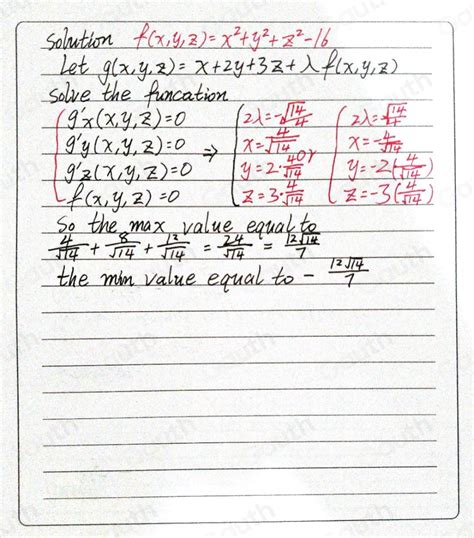 solution f(x,y,z)=x²+y²+z²-16
Let g(x,y,z)= x+2y+3z+λf(x,y,z)
solve the funcation
g'x(x,y,z)=0
g'y(x,y,z)=0
g'z(x,y,z)=0
f(x,y,z)=0
⇒
2λ=-√14/4
x=4/√14
y=2·4/√14
z=3·4/√14
or
2λ=√14/4
x=-4/√14
y=-2(4/√14)
z=-3(4/√14)
So the max value equal to
4/√14 + 8/√14 + 12/√14 = 24/√14 = 12√14/7
the min value equal to - 12√14/7